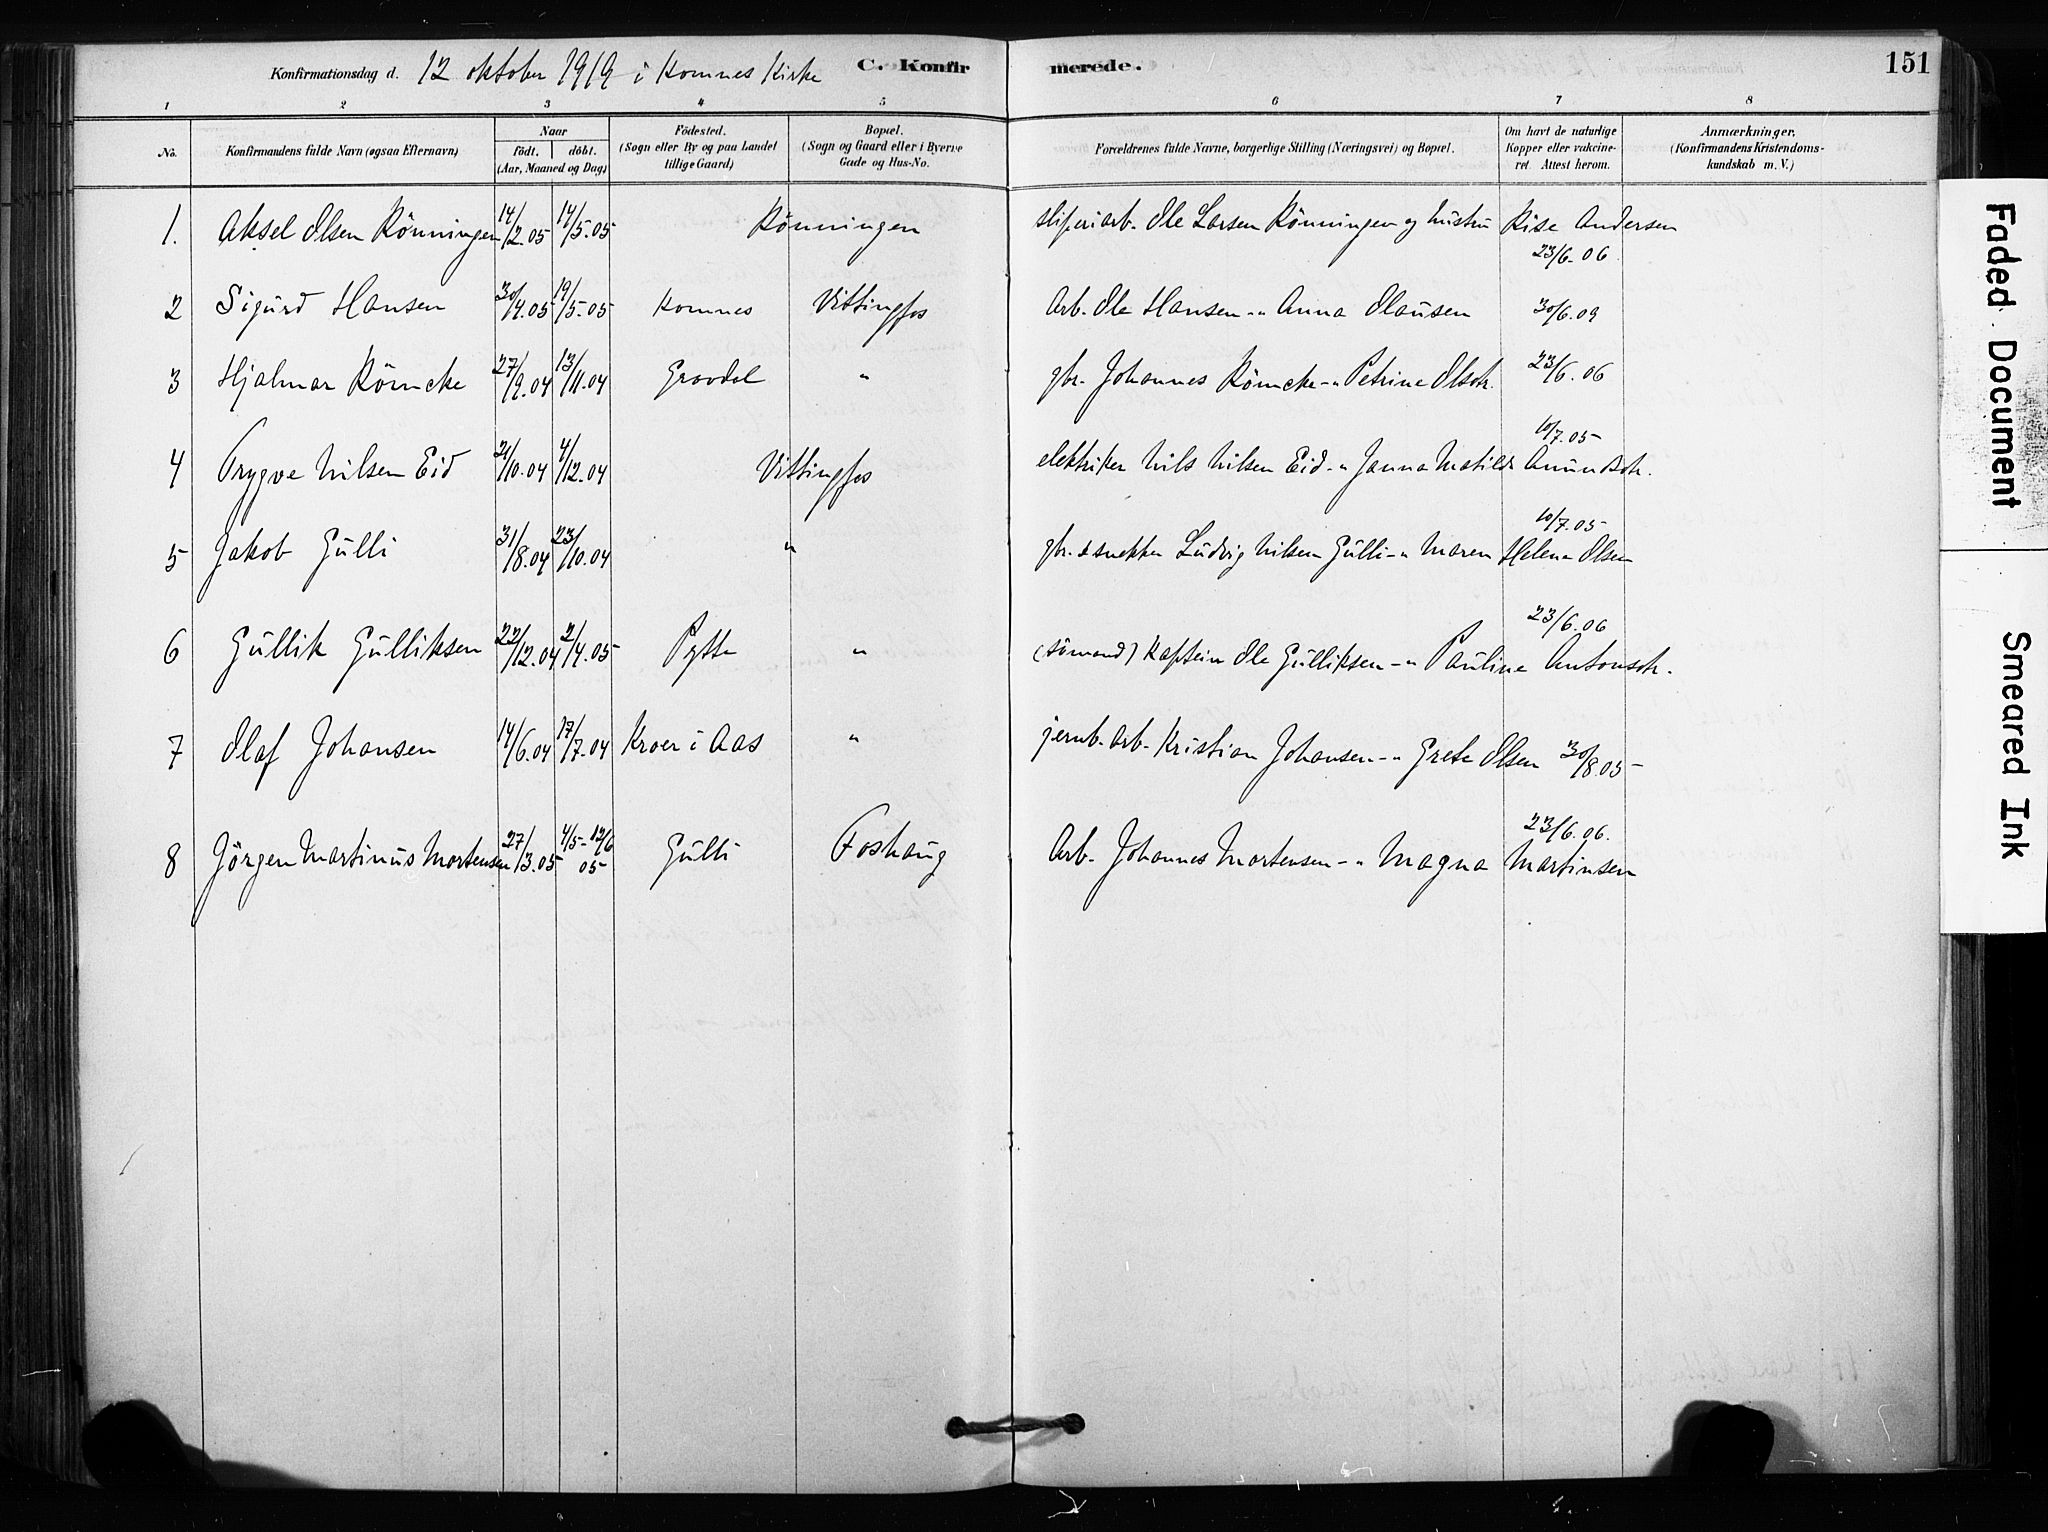 Konfirmationsdag d. 12 oktober 1919 i Komnes Kirke C. Konfirmerede. 151
1 2 3 4 5 6 7 8
No. Konfirmandens fulde Navn (øgsaa Efternavn) Naar födt. döbt. (Aar, Maaned og Dag) Födested. (Sogn eller By og paa Landet tillige Gaard) Bopæl. (Sogn og Gaard eller i Byerne Gade og Hus-No. Forældrenes fulde Navne, borgerlige Stilling (Næringsvei) og Bopæl. Om havt de naturlige Kopper eller vakcineret. Attest herom. Anmærkninger. (Konfirmandens Kristendomskundskab m. V.)
1. Aksel Olsen Rönningen 14/2.05 14/5.05 Rönningen sliperiarb. Ole Larsen Rönningen og hustru Rise Andersen
23/6.06
2 Sigurd Hansen 30/4.05 19/5.05 Komnes Vittingfos Arb. Ole Hansen -" Anna Olausen 30/6.09
3 Hjalmar Römcke 27/9.04 13/11.04 Gravdal " gbr. Johannes Römcke -" Petrine Olsdtr. 23/6.06
10/7.05
4 Trygve Nilsen Eid 21/10.04 4/12.04 Vittingfos elektriker Nils Nilsen Eid -" Janna Matilde Amundsdtr.
10/7.05
5 Jakob Gulli 31/8.04 23/10.04 " gbr. & snekker Ludvig Nilsen Gulli -" Maren Helene Olsen
23/6.06
6 Gullik Gulliksen 22/12.04 2/4.05 Pytte " (sömand) Kaptein Ole Gulliksen -" Pauline Antonsdtr.
7 Olaf Johansen 14/6.04 17/7.04 Kroer i Aas " jernb. arb. Kristian Johansen -" Grete Olsen 30/8.05
23/6.06.
8 Jörgen Martinus Mortensen 27/3.05 4/5-12/6 05 Gulli Foshaug Arb. Johannes Mortensen -" Magna Martinsen
Faded Document
Smeared Ink